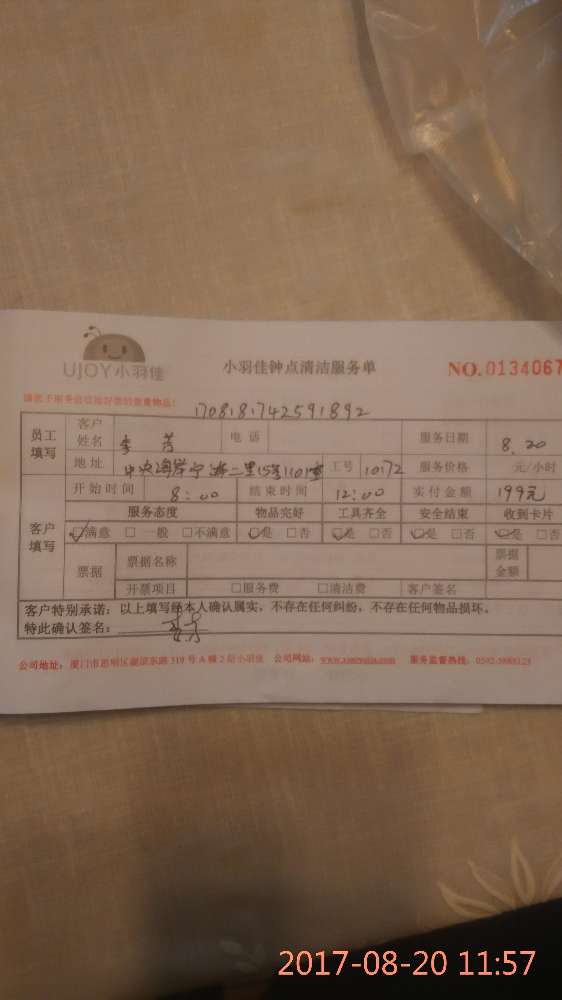 UJOY小羽佳
小羽佳钟点清洁服务单
NO.0134067
1708181742591892
员工填写 客户姓名 李芳 电话 服务日期 8.20
地址 中央海岸宁海二里15号1101室 工号 10172 服务价格 元/小时
客户填写 开始时间 8:00 结束时间 12:00 实付金额 199元
服务态度 物品完好 工具齐全 安全结束 收到卡片
满意 一般 不满意 是 否 是 否 是 否 是 否
票据 票据名称 票据金额
开票项目 服务费 清洁费 客户签名
客户特别承诺：以上填写经本人确认属实，不存在任何纠纷，不存在任何物品损坏。
特此确认签名：李芳
公司地址：厦门市思明区 319号A幢2层小羽佳 公司网站： 服务监督热线：
2017-08-20 11:57